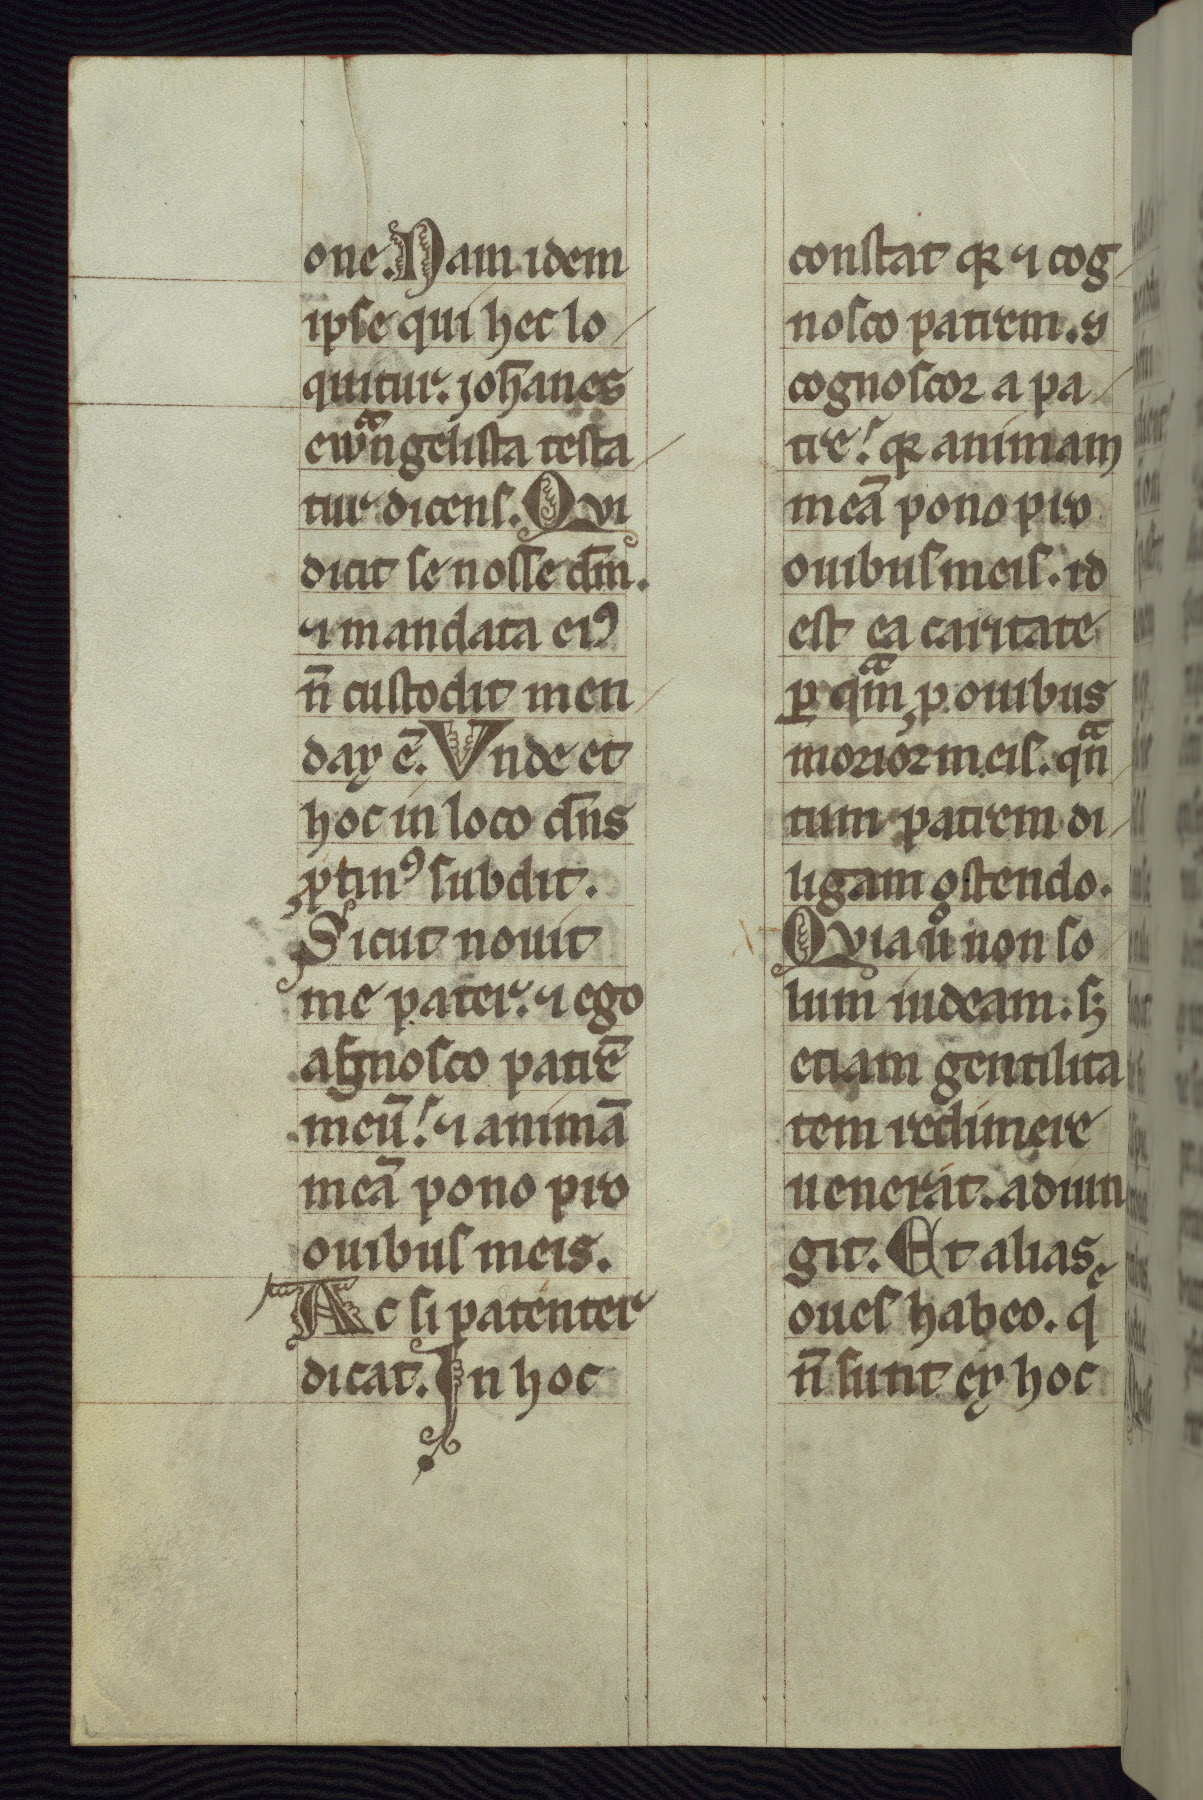 one. Nam idem
ipse qui hec lo
quitur. joh̄anes
ewᷓngelista testa
tur dicens. Qvi
dicit se nosse dm̄.
⁊ mandata eiꝰ
n̄ custodit men
dax ē. Vnde et
hoc in loco dn̄s
ꝓtinꝰ subdit.
Sicut nouit
me pater. ⁊ ego
agnosco patrē
meū! ⁊ animā
meā pono pro
ouibus meis.
Ac si patenter
dicat. In hoc
constat qꝛ ⁊ cog
nosco patrem. ⁊
cognoscor a pa
tre! qꝛ animam
meā pono pro
ouibus meis. id
est ea caritate
ꝑ qᷓm ꝓ ouibus
morior meis. qᷓn
tum patrem di
ligam ostendo.
Qvia uͦ non so
lum iudeam. sꝫ
etiam gentilita
tem redimere
uenerat. adiun
git. Et alias
oues habeo. qͤ
n̄ sunt ex hoc